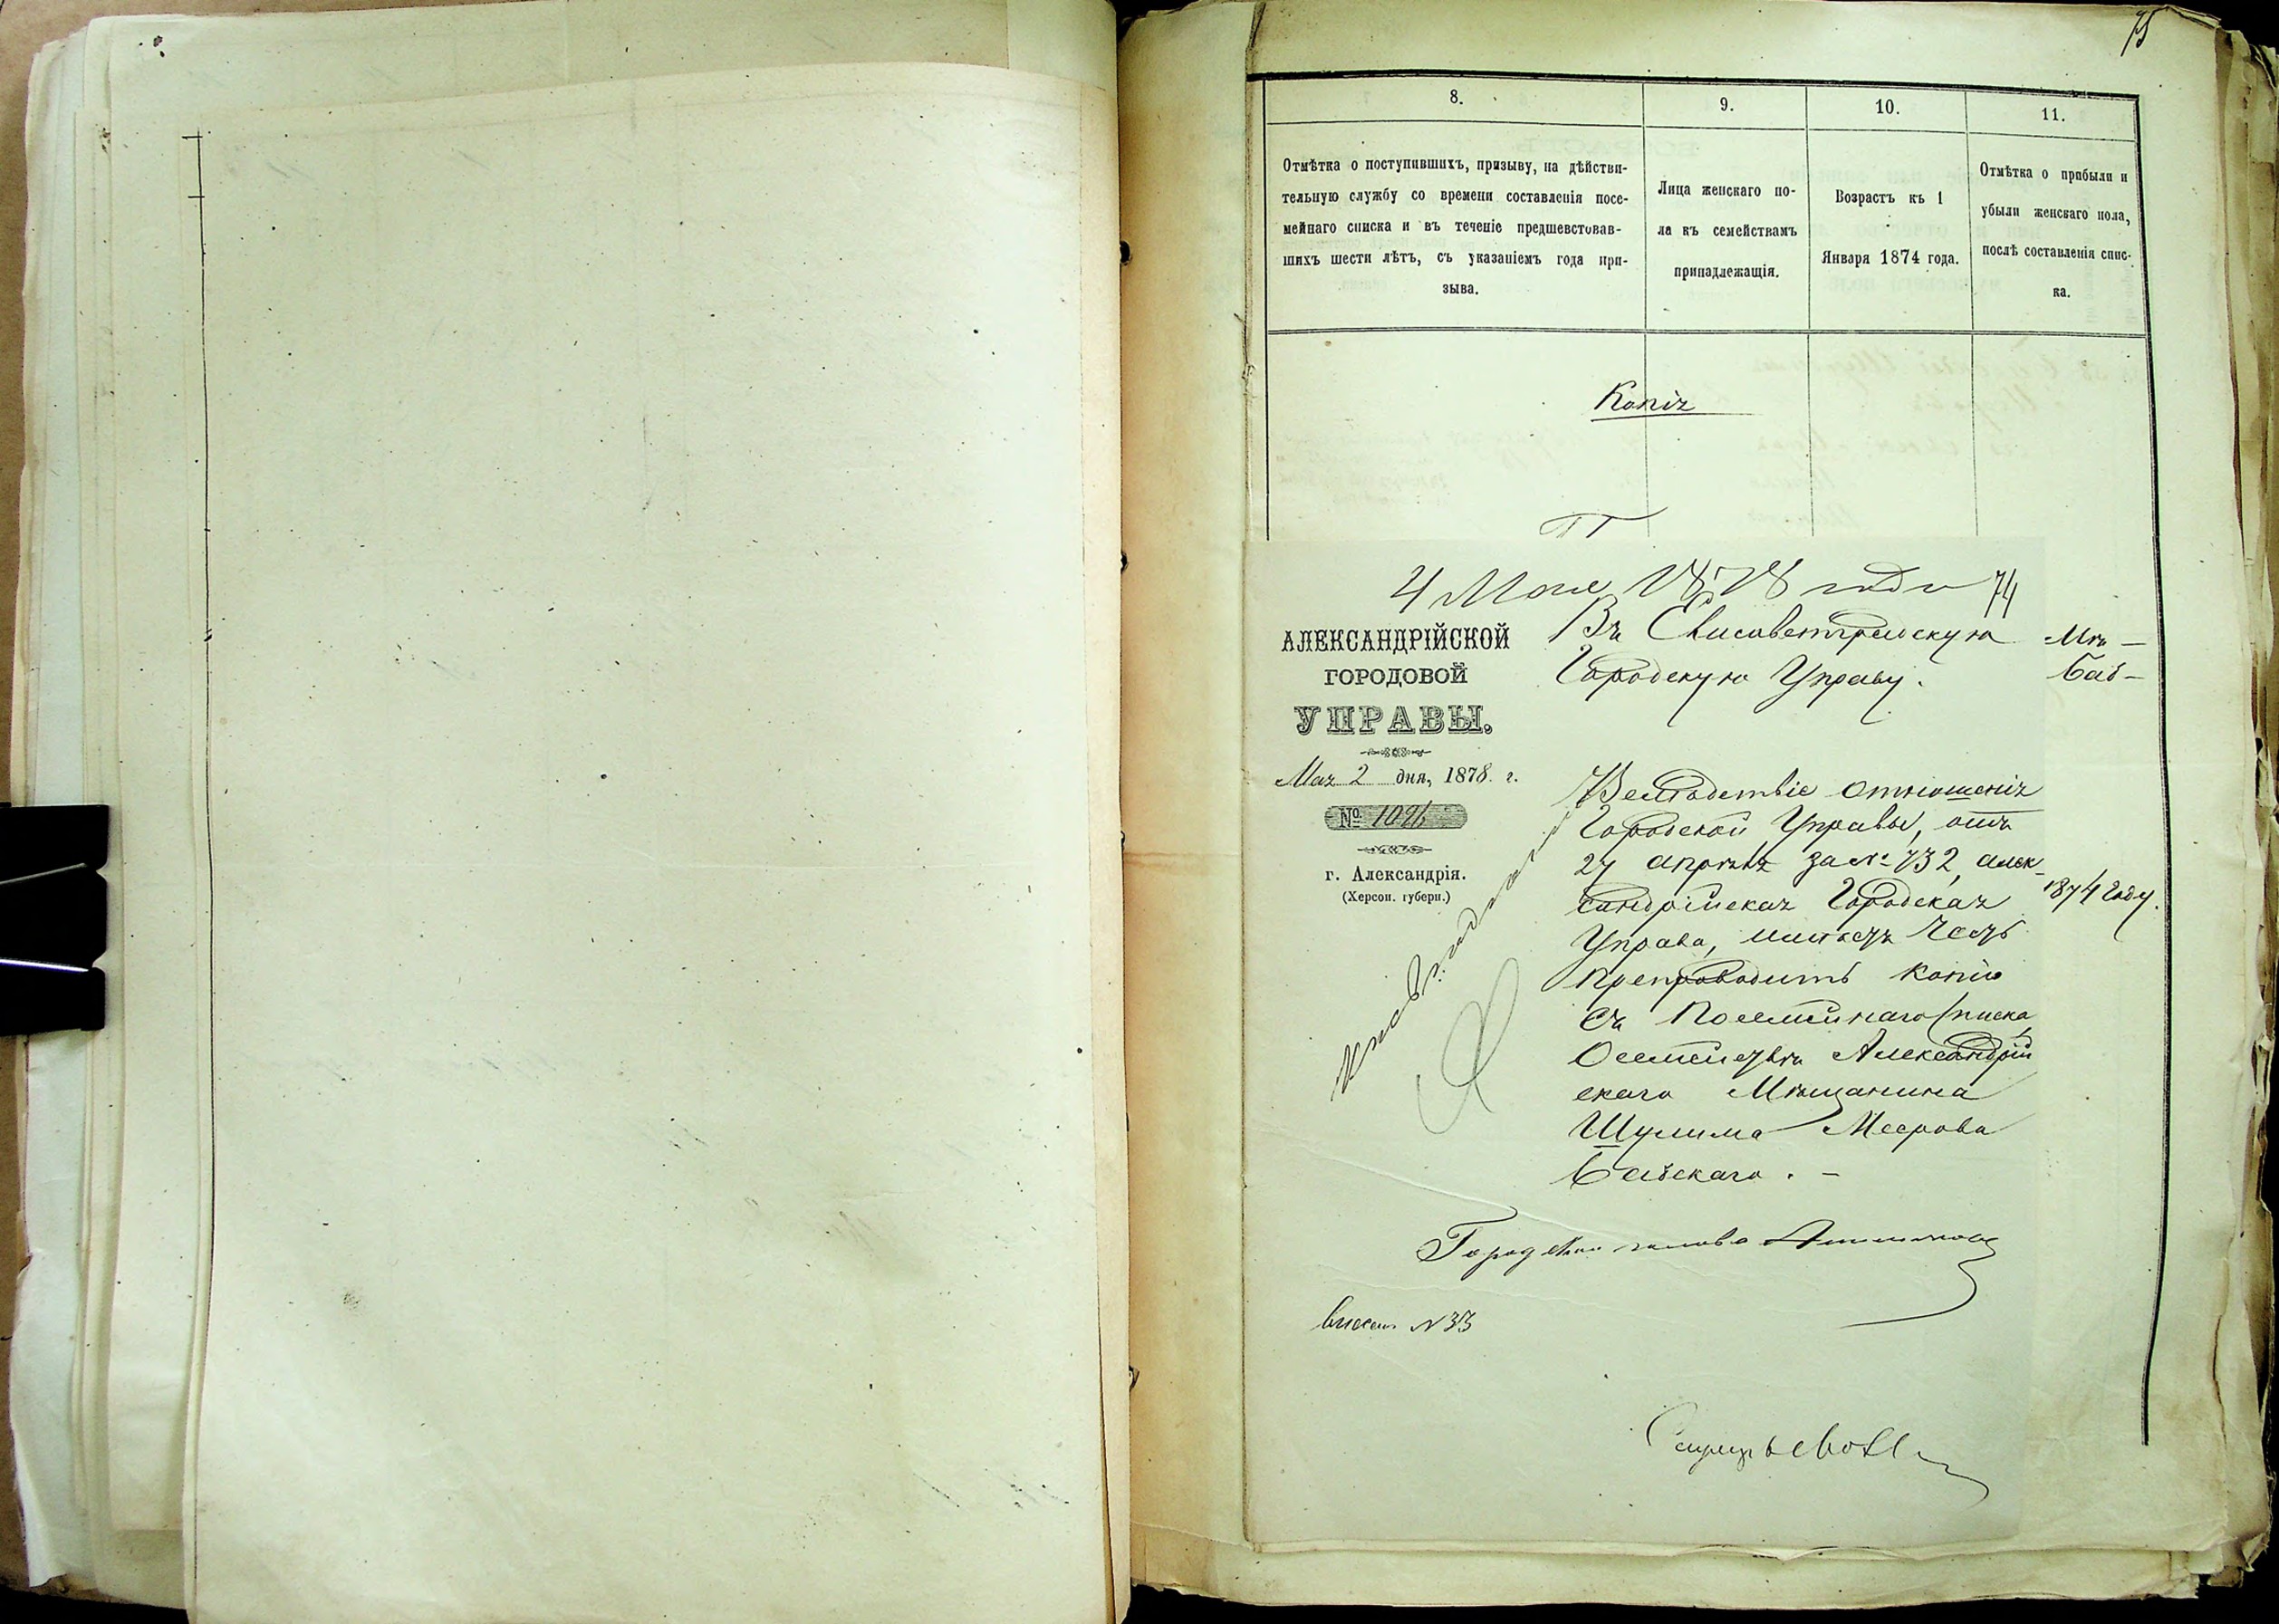 75
8.
9.
10.
11.
Отмѣтка о поступившихъ, призыву, на дѣйстви-
тельную службу со времени составленія посе-
мейнаго списка и въ теченіе предшевствовав-
шихъ шести лѣтъ, съ указаніемъ года при-
зыва.
Лица женскаго по-
ла къ семействамъ
принадлежащія.
Возрастъ къ 1
Января 1874 года.
Отмѣтка о прибыли и
убыли женскаго пола,
послѣ составленія спис-
ка.
Копія
4 Мая 1878 года 74
АЛЕКСАНДРІЙСКОЙ
ГОРОДОВОЙ
УПРАВЫ.
Мая 2 дня, 1878 г.
№ 1026
г. Александрія.
(Херсон. губерн.)
Въ Елисаветградскую
Городскую Управу.
Мѣ-
Баб-
1874 году.
Вслѣдствіе отношенія
Городской Управы, отъ
27 апрѣля за № 732, Алек-
сандрійская Городская
Управа, имѣетъ честь
препроводить копію
съ Посемейнаго списка
о семействѣ Александрій
скаго Мѣщанина
Шулима Меерова
Бабскаго. -
Городской голова
№ 33